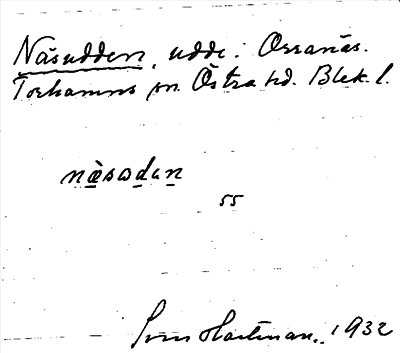 Näsudden, udde: Orranäs.
Torhamns sn. Östra hd. Blek. l.
næsɷdən
55
Sven Hartman. 1932